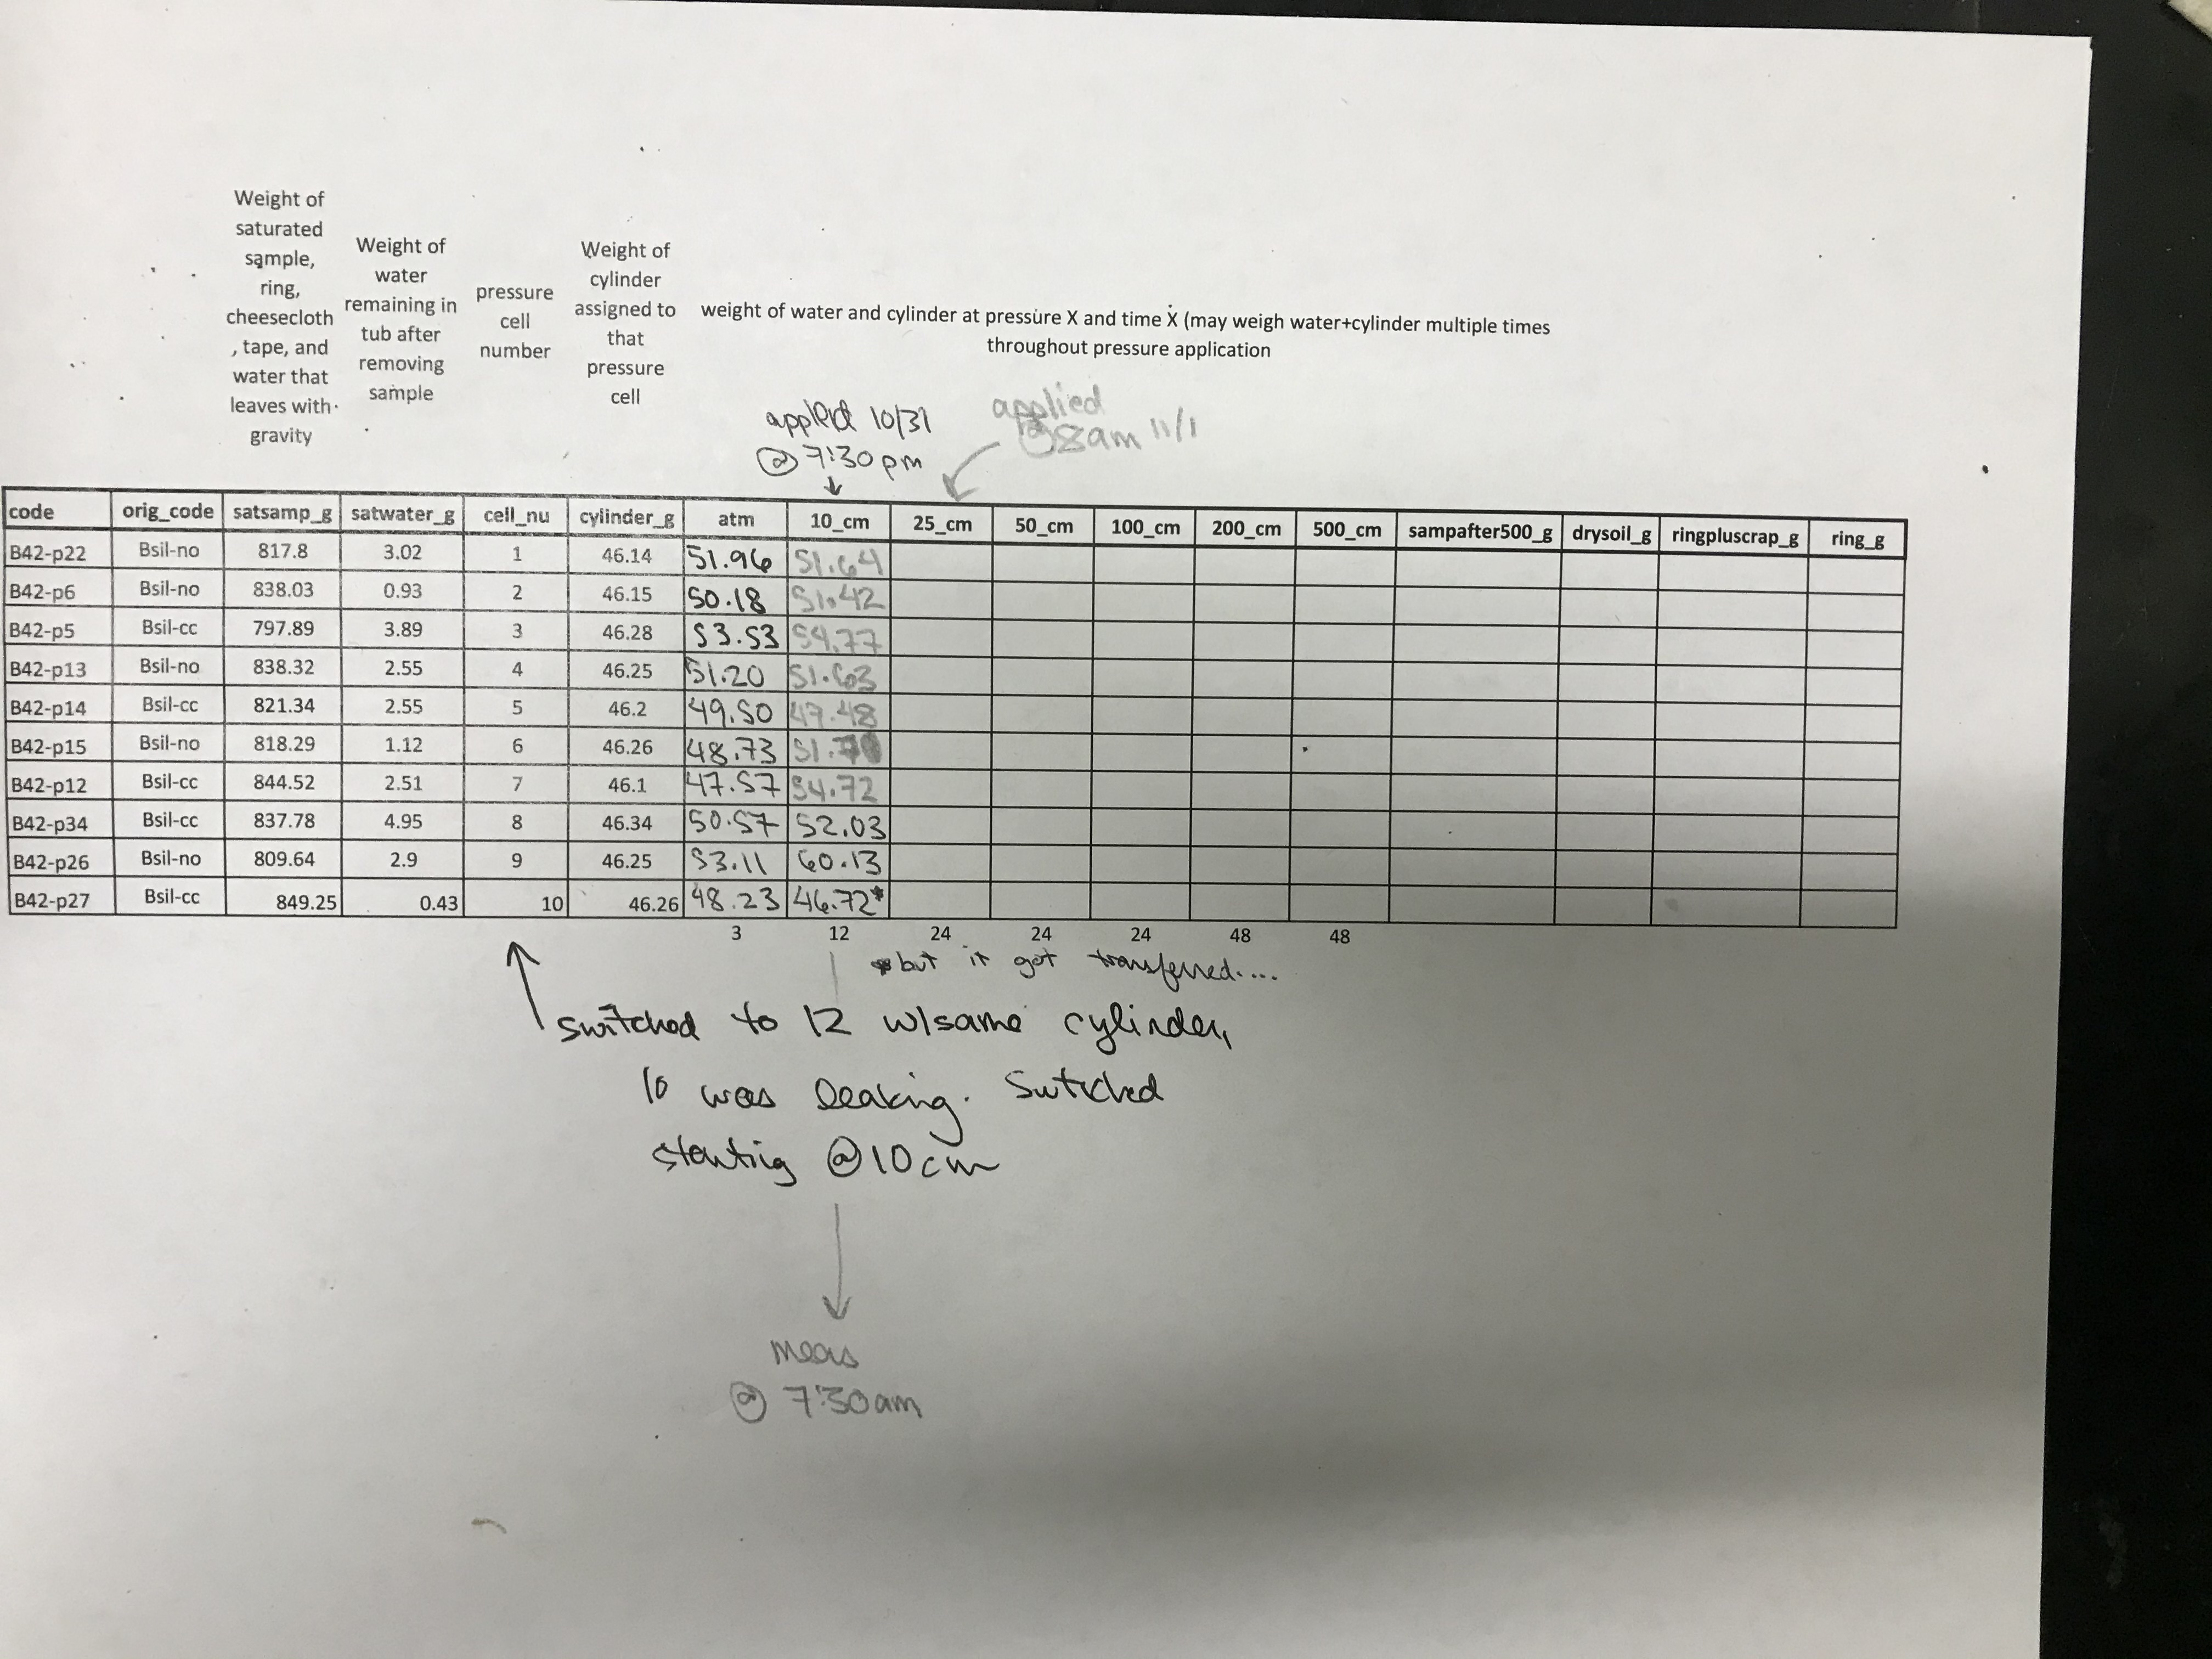 Weight of
saturated
sample,
ring,
cheesecloth
, tape, and
water that
leaves with
gravity
Weight of
water
remaining in
tub after
removing
sample
pressure
cell
number
Weight of
cylinder
assigned to
that
pressure
cell
weight of water and cylinder at pressure X and time X (may weigh water+cylinder multiple times
throughout pressure application
applied 10/31
@ 7:30 pm
applied
@ 8am 11/1
code orig_code satsamp_g satwater_g cell_nu cylinder_g atm 10_cm 25_cm 50_cm 100_cm 200_cm 500_cm sampafter500_g drysoil_g ringpluscrap_g ring_g
B42-p22 Bsil-no 817.8 3.02 1 46.14 51.96 51.64
B42-p6 Bsil-no 838.03 0.93 2 46.15 50.18 51.42
B42-p5 Bsil-cc 797.89 3.89 3 46.28 53.53 54.77
B42-p13 Bsil-no 838.32 2.55 4 46.25 51.20 51.63
B42-p14 Bsil-cc 821.34 2.55 5 46.2 49.50 47.48
B42-p15 Bsil-no 818.29 1.12 6 46.26 48.73
B42-p12 Bsil-cc 844.52 2.51 7 46.1 47.57 54.72
B42-p34 Bsil-cc 837.78 4.95 8 46.34 50.57 52.03
B42-p26 Bsil-no 809.64 2.9 9 46.25 53.11 60.13
B42-p27 Bsil-cc 849.25 0.43 10 46.26 48.23 46.72*
3 12 24 24 24 48 48
* but it got transferred....
switched to 12 w/same cylinder,
10 was leaking. Switched
starting @ 10 cm
meas
@ 7:30am